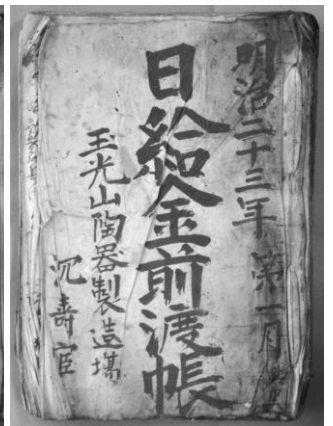 明治二十三年 第一月
日給金前渡帳
玉光山陶器製造場
沉壽官